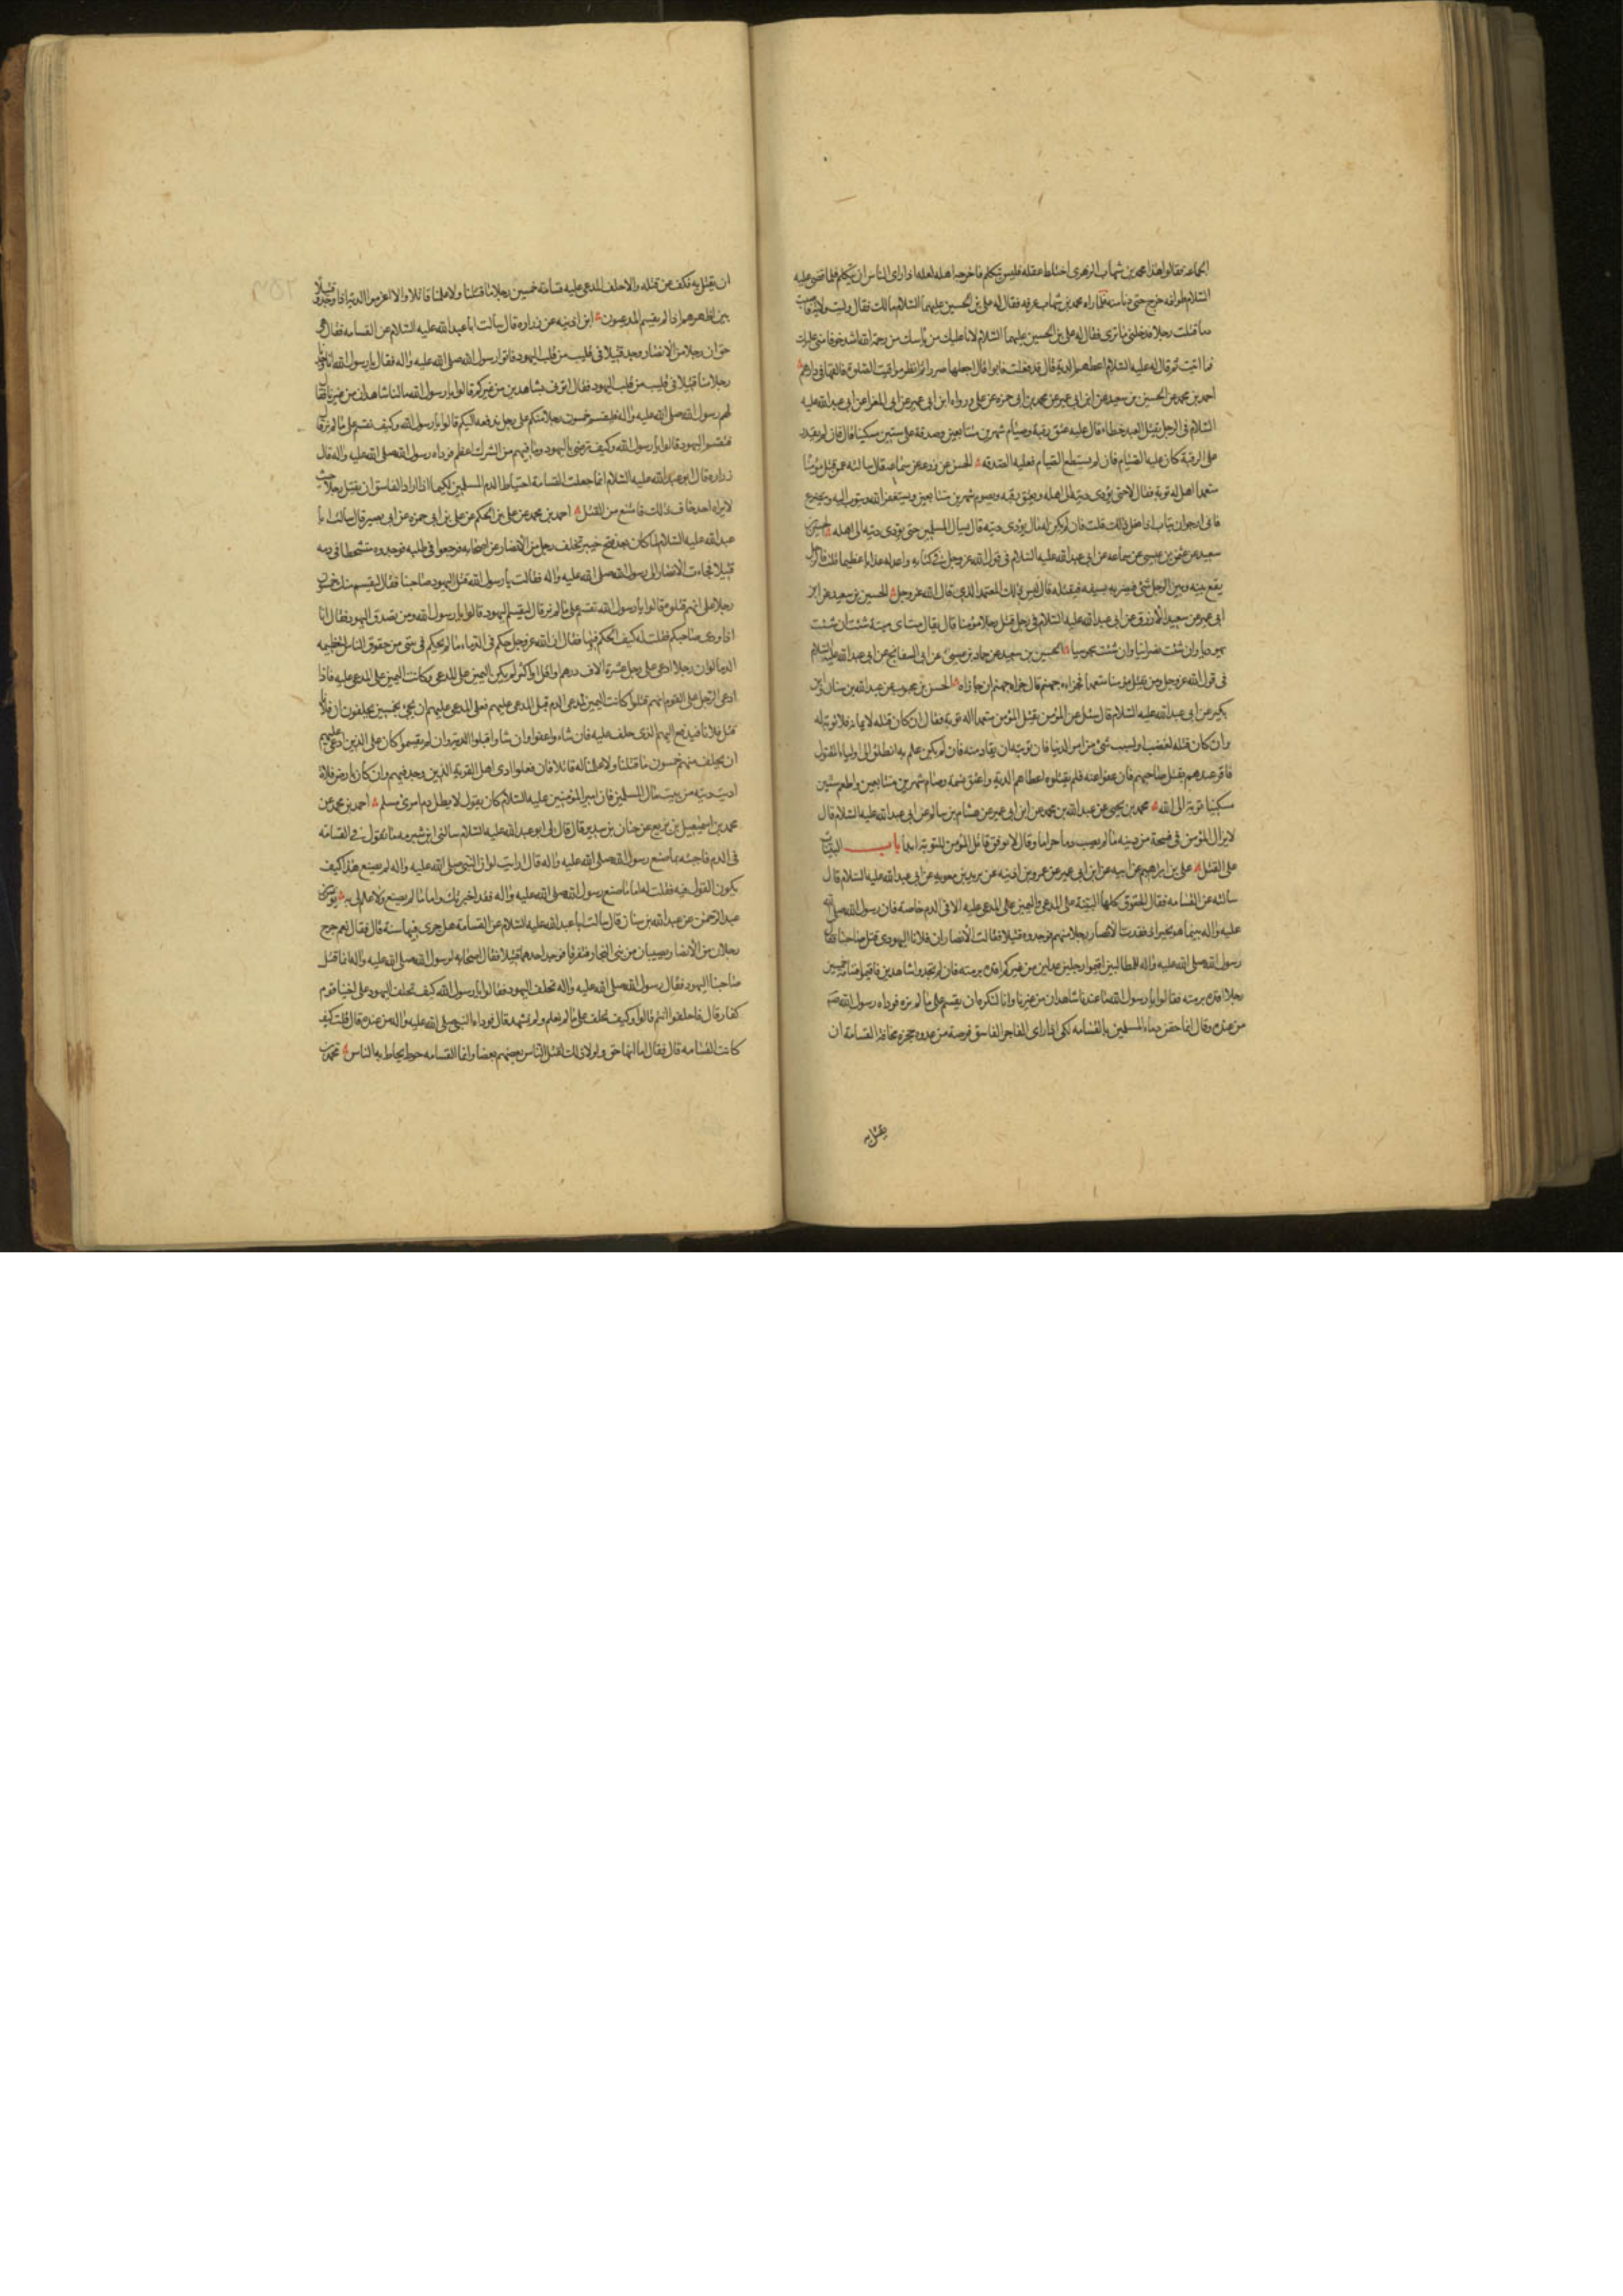 الجماعة فقالوا هذا محمد بن شهاب الزهري اختلط عقله فليس يتكلم فاخرجه اهله لعله اذا راى الناس ان يتكلم فلما قضى عليه
السلام طوافه خرج حتى دنا منه فلما راه محمد بن شهاب عرفه فقال له علي بن الحسين عليهما السلام مالك فقال وليت ولاية فاصبت
دما فقتلت رجلا فدخلني ما ترى فقال له علي بن الحسين عليهما السلام لانا عليك من يأسك من رحمة الله اشد خوفا مني عليك
مما اتيت ثم قال له عليه السلام اعطهم الدية قال قد فعلت فابوا قال اجعلها صررا ثم انظر مواقيت الصلوة فالقها في دارهم
احمد بن محمد عن الحسين بن سعيد عن ابن ابي عمير عن محمد بن ابي حمزة عن علي ورواه ابن ابي عمير عن ابي المغرا عن ابي عبد الله عليه
السلام في الرجل يقتل العبد خطاء قال عليه عتق رقبة وصيام شهرين متتابعين وصدقة على ستين مسكينا قال فان لم يقدر
على الرقبة كان عليه الصيام فان لم يستطع الصيام فعليه الصدقه الحسن عن زرعه عن سماعه قال سالته عمن قتل مؤمنا
متعمدا هل له توبة فقال لا حتى يؤدي ديته الى اهله ويعتق رقبه ويصوم شهرين متتابعين ويستغفر الله ويتوب اليه ويتضرع
فاني ارجو ان يتاب اذا فعل ذلك قلت فان لم يكن له مال يؤدي ديته قال يسال المسلمين حتى يؤدي ديته الى اهله الحسين بن
سعيد عن عثمن بن عيسى عن سماعه عن ابي عبد الله عليه السلام في قول الله عز وجل في كتابه واعد له عذابا عظيما قلت فالرجل
يقع بينه وبين الرجل شئ فيضربه بسيفه فيقتله قال ليس ذلك المتعمد الذي قال الله عز وجل الحسين بن سعيد عن ابن
ابي عمير عن سعيد الازرق عن ابي عبد الله عليه السلام في رجل قتل رجلا مؤمنا قال يقال له مت اي ميتة شئت ان شئت
يهوديا وان شئت نصرانيا وان شئت مجوسيا الحسين بن سعيد عن حماد بن عيسى عن ابي السفاتج عن ابي عبد الله عليه السلام
في قول الله عز وجل ومن يقتل مؤمنا متعمدا فجزاءه جهنم قال جزاه جهنم ان جازاه الحسن بن محبوب عن عبد الله بن سنان وابن
بكير عن ابي عبد الله عليه السلام قال سئل عن المؤمن يقتل المؤمن متعمدا اله توبة فقال ان كان قتله لايمانه فلا توبة له
وان كان قتله لغضب او لسبب شئ من امر الدنيا فان توبته ان يقاد منه فان لم يكن علم به انطلق الى اولياء المقتول
فاقر عندهم بقتل صاحبهم فان عفوا عنه فلم يقتلوه اعطاهم الدية واعتق نسمة وصام شهرين متتابعين واطعم ستين
مسكينا توبة الى الله محمد بن يحيى عن عبد الله بن محمد عن ابن ابي عمير عن هشام بن سالم عن ابي عبد الله عليه السلام قال
لا يزال المؤمن في فسحة من دينه ما لم يصب دما حراما وقال لا يوفق قاتل المؤمن للتوبة ابدا باب البينات
على القتل علي بن ابراهيم عن ابيه عن ابن ابي عمير عن عمر بن اذينه عن بريد بن معويه عن ابي عبد الله عليه السلام قال
سالته عن القسامه فقال الحقوق كلها البينة على المدعي واليمين على المدعى عليه الا في الدم خاصة فان رسول الله صلى الله
عليه واله بينما هو بخيبر اذ فقدت الانصار رجلا منهم فوجدوه قتيلا فقالت الانصار ان فلانا اليهودي قتل صاحبنا فقال
رسول الله صلى الله عليه واله للطالبين اقيموا رجلين عدلين من غيركم اقده برمته فان لم تجدوا شاهدين فاقيموا قسامة خمسين
رجلا اقده برمته فقالوا يا رسول الله ما عندنا شاهدان من غيرنا وانا لنكره ان يقسم على ما لم نره فوداه رسول الله
من عنده وقال انما حقن دماء المسلمين بالقسامه لكي اذا راى الفاجر الفاسق فرصة من عدوه حجزه مخافة القسامة ان
يقتل به
ان يقتل به فكف عن قتله والا حلف المدعى عليه قسامة خمسين رجلا ما قتلنا ولا علمنا قاتلا والا اغرموا الدية اذا وجدوا قتيلا
بين اظهرهم اذا لم يقسم المدعون ابن اذينه عن زراره قال سالت ابا عبد الله عليه السلام عن القسامه فقال هي
حق ان رجلا من الانصار وجد قتيلا في قليب من قلب اليهود فاتوا رسول الله صلى الله عليه واله فقالوا يا رسول الله انا وجدنا
رجلا منا قتيلا في قليب من قلب اليهود فقال ايتوني بشاهدين من غيركم قالوا يا رسول الله ما لنا شاهدان من غيرنا فقال
لهم رسول الله صلى الله عليه واله فليقسم خمسون رجلا منكم على رجل ندفعه اليكم قالوا يا رسول الله وكيف نقسم على ما لم نره قال
فيقسم اليهود قالوا يا رسول الله وكيف نرضى باليهود وما فيهم من الشرك اعظم فوداه رسول الله صلى الله عليه واله قال
زراره قال ابو عبد الله عليه السلام انما جعلت القسامة احتياطا لدم المسلمين لكيما اذا اراد الفاسق ان يقتل رجلا حيث
لا يراه احد خاف ذلك فامتنع من القتل احمد بن محمد عن علي بن الحكم عن علي بن ابي حمزه عن ابي بصير قال سالت ابا
عبد الله عليه السلام لما كان بعد فتح خيبر تخلف رجل من الانصار عن اصحابه فرجعوا في طلبه فوجدوه متشحطا في دمه
قتيلا فجاءت الانصار الى رسول الله صلى الله عليه واله فقالت يا رسول الله قتل اليهود صاحبنا فقال ليقسم منكم خمسون
رجلا على انهم قتلوه قالوا يا رسول الله نقسم على ما لم نر قال ليقسم اليهود قالوا يا رسول الله ومن يصدق اليهود فقال انا
اذا ودي صاحبكم فقلت له كيف الحكم فيها فقال ان الله عز وجل حكم في الدماء ما لم يحكم في شئ من حقوق الناس لتعظيمه
الدما لو ان رجلا ادعى على رجل عشرة الاف درهم او اقل او اكثر لم يكن اليمين على المدعي وكانت اليمين على المدعى عليه فاذا
ادعى الرجل على القوم انهم قتلوا كانت اليمين لمدعي الدم قبل المدعى عليهم فعلى المدعي عليهم ان يجئ بخمسين يحلفون ان فلانا
قتل فلانا فيدفع اليهم الذي حلف عليه فان شاءوا عفوا وان شاءوا قبلوا الدية وان لم يقسموا كان على الذين ادعي عليهم
ان يحلف منهم خمسون ما قتلنا ولا علمنا له قاتلا فان فعلوا ادى اهل القرية الذين وجد فيهم وان كان بارض فلاة
اديت ديته من بيت مال المسلمين فان امير المؤمنين عليه السلام كان يقول لا يطل دم امرئ مسلم احمد بن محمد عن
محمد بن اسمعيل بن بزيع عن حنان بن سدير قال قال لي ابو عبد الله عليه السلام سالني ابن شبرمه ما تقول في القسامة
في الدم فاجبته بما صنع رسول الله صلى الله عليه واله قال ارايت لو ان النبي صلى الله عليه واله لم يصنع هذا كيف
يكون القول فيه فقلت له اما ما صنع رسول الله صلى الله عليه واله فقد اخبرتك واما ما لم يصنع فلا علم لي به يونس بن
عبد الرحمن عن عبد الله بن سنان قال سالت ابا عبد الله عليه السلام عن القسامة هل جرى فيها سنة قال فقال نعم خرج
رجلان من الانصار يصيبان من بني النجار فتفرقا فوجد احدهما قتيلا فقال اصحابه لرسول الله صلى الله عليه واله انما قتل
صاحبنا اليهود فقال رسول الله صلى الله عليه واله تحلف اليهود فقالوا يا رسول الله كيف تحلف اليهود على اخينا قوم
كفار قال فاحلفوا انتم قالوا وكيف نحلف على ما لم نعلم ولم نشهد قال فوداه النبي صلى الله عليه واله من عنده قال قلت كيف
كانت القسامه قال فقال اما انها حق ولولا ذلك لقتل الناس بعضهم بعضا وانما القسامه حوط يحاط به الناس محمد بن